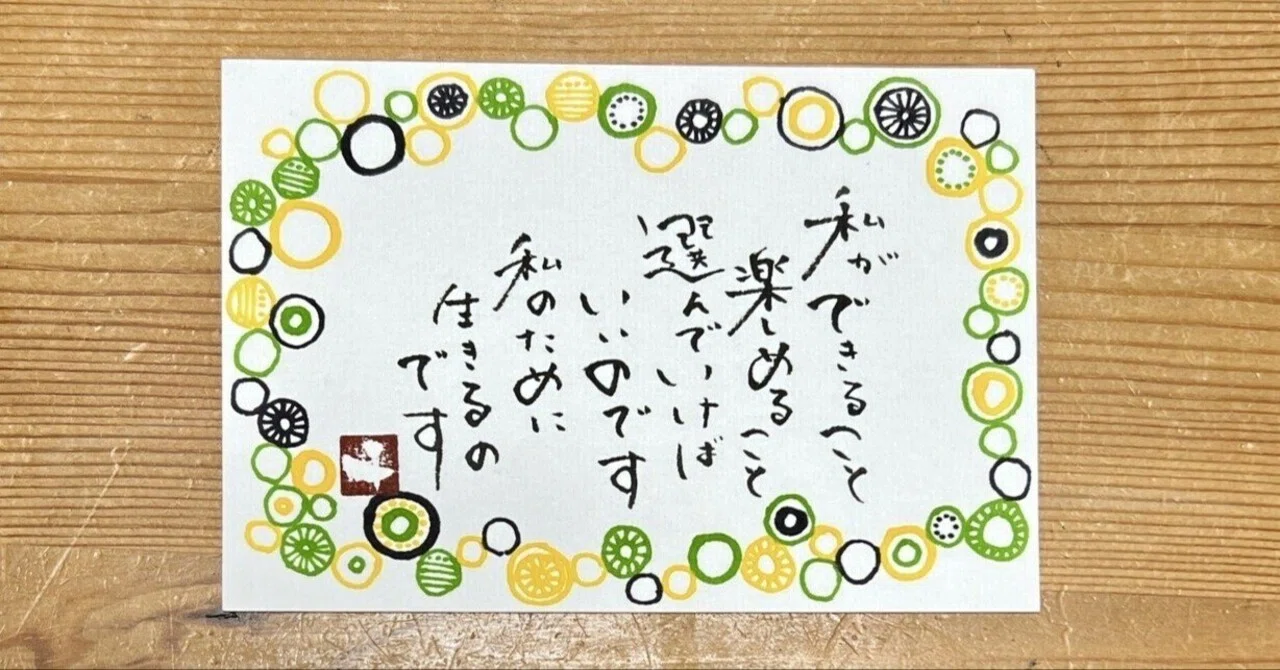 私ができること
楽しめること
選んでいけば
いいのです
私のために
生きるの
です